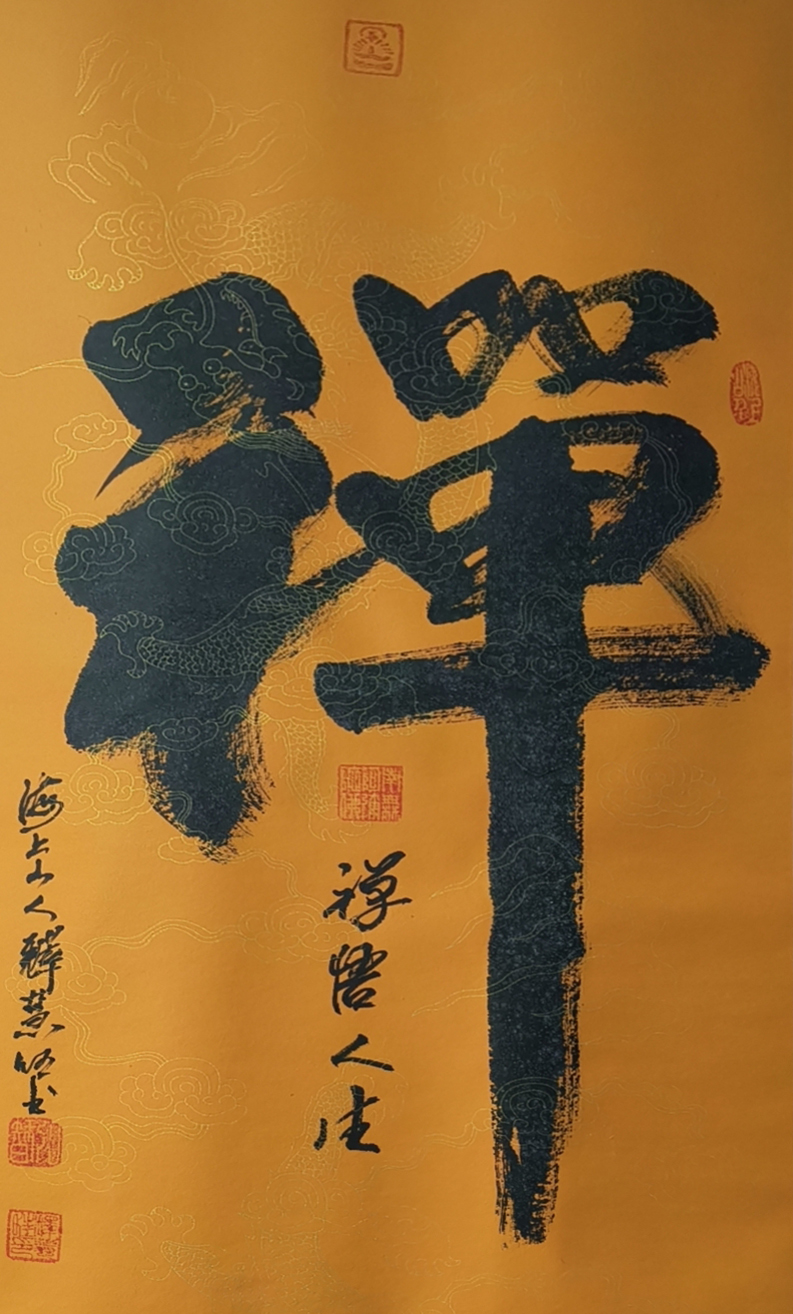 禪
禅悟人生
海上山人釋慧心书